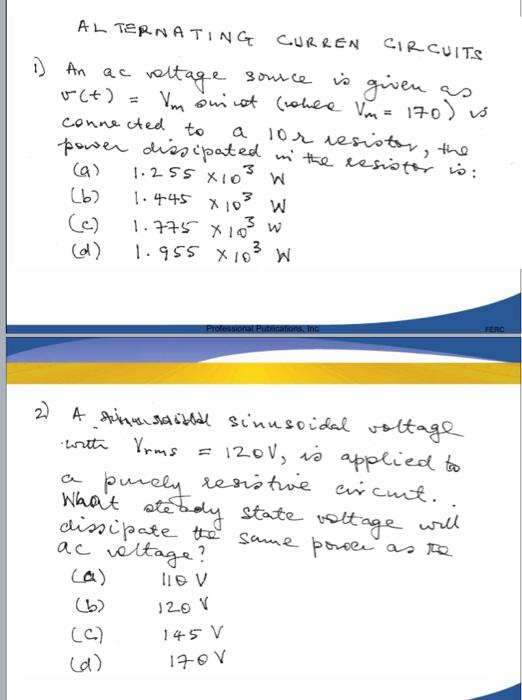 ALTERNATING CURREN CIRCUITS
1) An ac voltage source is given as
v(t) = Vm sin ωt (where Vm = 170) is
connected to a 10 Ω resistor, the
power dissipated in the resistor is:
(a) 1.255 × 10³ W
(b) 1.445 × 10³ W
(c) 1.775 × 10³ W
(d) 1.955 × 10³ W
Professional Publications, Inc
FERC
2) A sinusoidal voltage
with Vrms = 120V, is applied to
a purely resistive circuit.
What steady state voltage will
dissipate the same power as the
ac voltage?
(a) 110 V
(b) 120 V
(c) 145 V
(d) 170 V